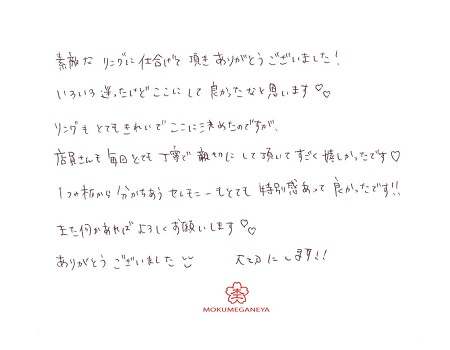 素敵な リングに仕上げて 頂き ありがとう ございました！
いろいろ 迷ったけど ここにして 良かったなと思います♡♡
リングも とても きれいで ここに決めたのですが、
店員さんも 毎回とても 丁寧で 親切にして頂いて すごく嬉しかったです♡
1つの板から 分かちあう セレモニーもとても 特別感あって 良かったです!!
また何かあれば よろしくお願いします♡♡
ありがとう ございました 大切にします!!
MOKUMEGANEYA